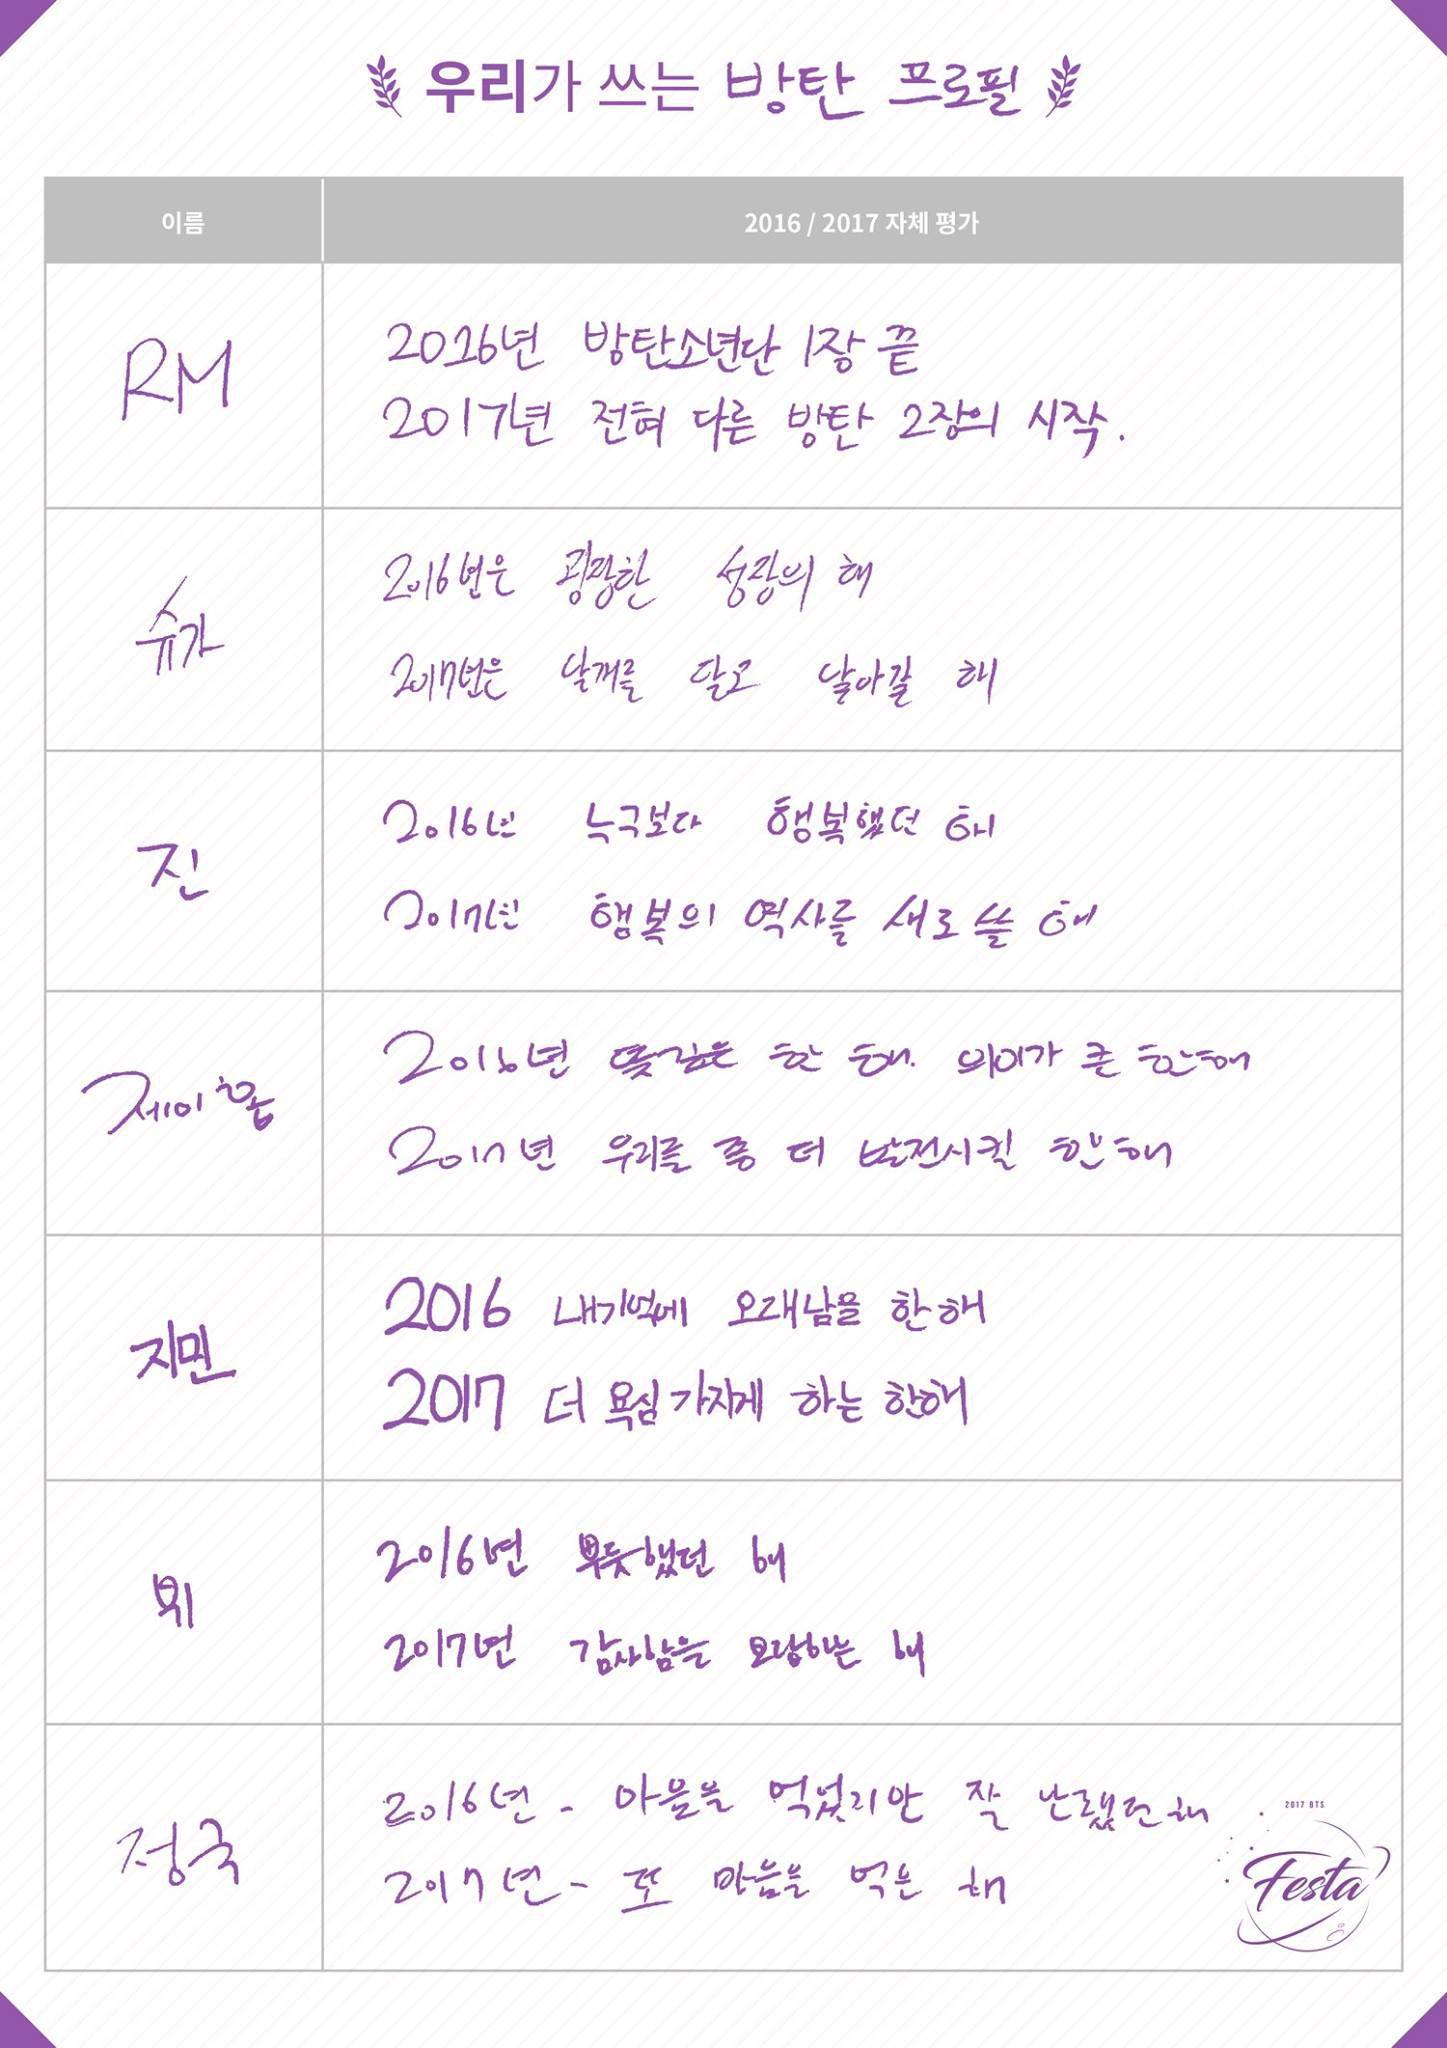 우리가 쓰는 방탄 프로필
이름
2016 / 2017 자체 평가
RM
2016년 방탄소년단 1장 끝
2017년 전혀 다른 방탄 2장의 시작.
슈가
2016년은 굉장한 성장의 해
2017년은 날개를 달고 날아갈 해
진
2016년 누구보다 행복했던 해
2017년 행복의 역사를 새로 쓸 해
제이홉
2016년 뜻깊은 한 해. 의미가 큰 한해
2017년 우리를 좀 더 발전시킬 한해
지민
2016 내기억에 오래남을 한해
2017 더 욕심가지게 하는 한해
뷔
2016년 뿌듯했던 해
2017년 감사함을 보답하는 해
정국
2016년 - 마음을 먹었지만 잘 안됐던 해
2017년 - 또 마음을 먹은 해
2017 BTS
Festa